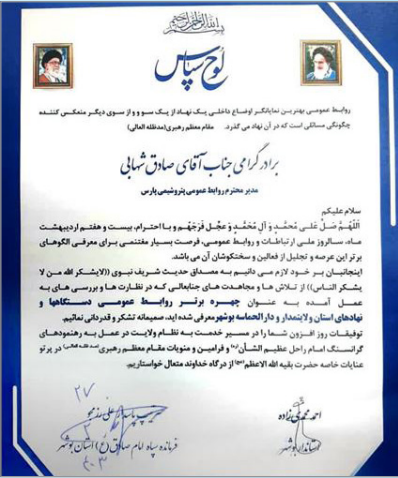 بسم الله الرحمن الرحیم
لوح سپاس
روابط عمومی بهترین نمایانگر اوضاع داخلی یک نهاد از یک سو و و از سوی دیگر منعکس کننده
چگونگی مسائلی است که در آن نهاد می گذرد. مقام معظم رهبری(مدظله العالی)
برادر گرامی جناب آقای صادق شهابی
مدیر محترم روابط عمومی پتروشیمی پارس
سلام علیکم
اَللّهُمَّ صَلِّ عَلی مُحَمَّدٍ وَ آلِ مُحَمَّدٍ وَ عَجِّل فَرَجَهُم و با احترام، بیست و هفتم اردیبهشت
ماه، سالروز ملی ارتباطات و روابط عمومی، فرصت بسیار مغتنمی برای معرفی الگوهای
برتر این عرصه و تجلیل از فعالین و سختکوشان آن می باشد.
اینجانبان بر خود لازم می دانیم به مصداق حدیث شریف نبوی ((لایشکر الله من لا
یشکر الناس)) از تلاش ها و مجاهدت های جنابعالی که در نظارت ها و بررسی های به
عمل آمده به عنوان چهره برتر روابط عمومی دستگاهها و
نهادهای استان ولایتمدار و دارالحماسه بوشهر معرفی شده اید، صمیمانه تشکر و قدردانی نمائیم.
توفیقات روز افزون شما را در مسیر خدمت به نظام ولایت در عمل به رهنمودهای
گرانسنگ امام راحل عظیم الشأن(ره) و فرامین و منویات مقام معظم رهبری(مد ظله العالی) در پرتو
عنایات خاصه حضرت بقیه الله الاعظم(عج) از درگاه خداوند متعال خواستاریم.
احمد محمدی زاده
استاندار بوشهر
سرتیپ پاسدار علی رزمجو
فرمانده سپاه امام صادق (ع) استان بوشهر